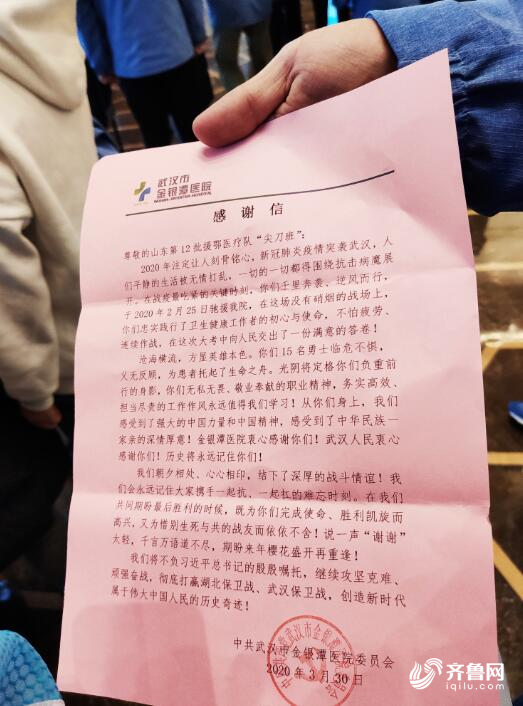 武汉市
金银潭医院
WUHAN JINYINTAN HOSPITAL
感谢信
尊敬的山东第12批援鄂医疗队“尖刀班”：
2020年注定让人刻骨铭心，新冠肺炎疫情突袭武汉，人
们平静的生活被无情打乱，一切的一切都得围绕抗击病魔展
开。在战疫最吃紧的关键时刻，你们千里奔袭、逆风而行，
于2020年2月25日驰援我院，在这场没有硝烟的战场上，
你们忠实践行了卫生健康工作者的初心与使命，不怕疲劳、
连续作战，在这次大考中向人民交出了一份满意的答卷！
沧海横流，方显英雄本色。你们15名勇士临危不惧，
义无反顾，为患者托起了生命之舟。光阴将定格你们负重前
行的身影，你们无私无畏、敬业奉献的职业精神，务实高效、
担当尽责的工作作风永远值得我们学习！从你们身上，我们
感受到了强大的中国力量和中国精神，感受到了中华民族一
家亲的深情厚意！金银潭医院衷心感谢你们！武汉人民衷心
感谢你们！历史将永远记住你们！
我们朝夕相处、心心相印，结下了深厚的战斗情谊！我
们会永远记住大家携手一起扒、一起扛的难忘时刻。在我们
共同期盼最后胜利的时候，既为你们完成使命、胜利凯旋而
高兴，又为惜别生死与共的战友而依依不舍！说一声“谢谢”
太轻，千言万语道不尽，期盼来年樱花盛开再重逢！
我们将不负习近平总书记的殷殷嘱托，继续攻坚克难、
顽强奋战，彻底打赢湖北保卫战、武汉保卫战，创造新时代
属于伟大中国人民的历史奇迹！
中共武汉市金银潭医院委员会
2020年3月30日
中共武汉市金银潭医院委员会
齐鲁网
iqilu.com